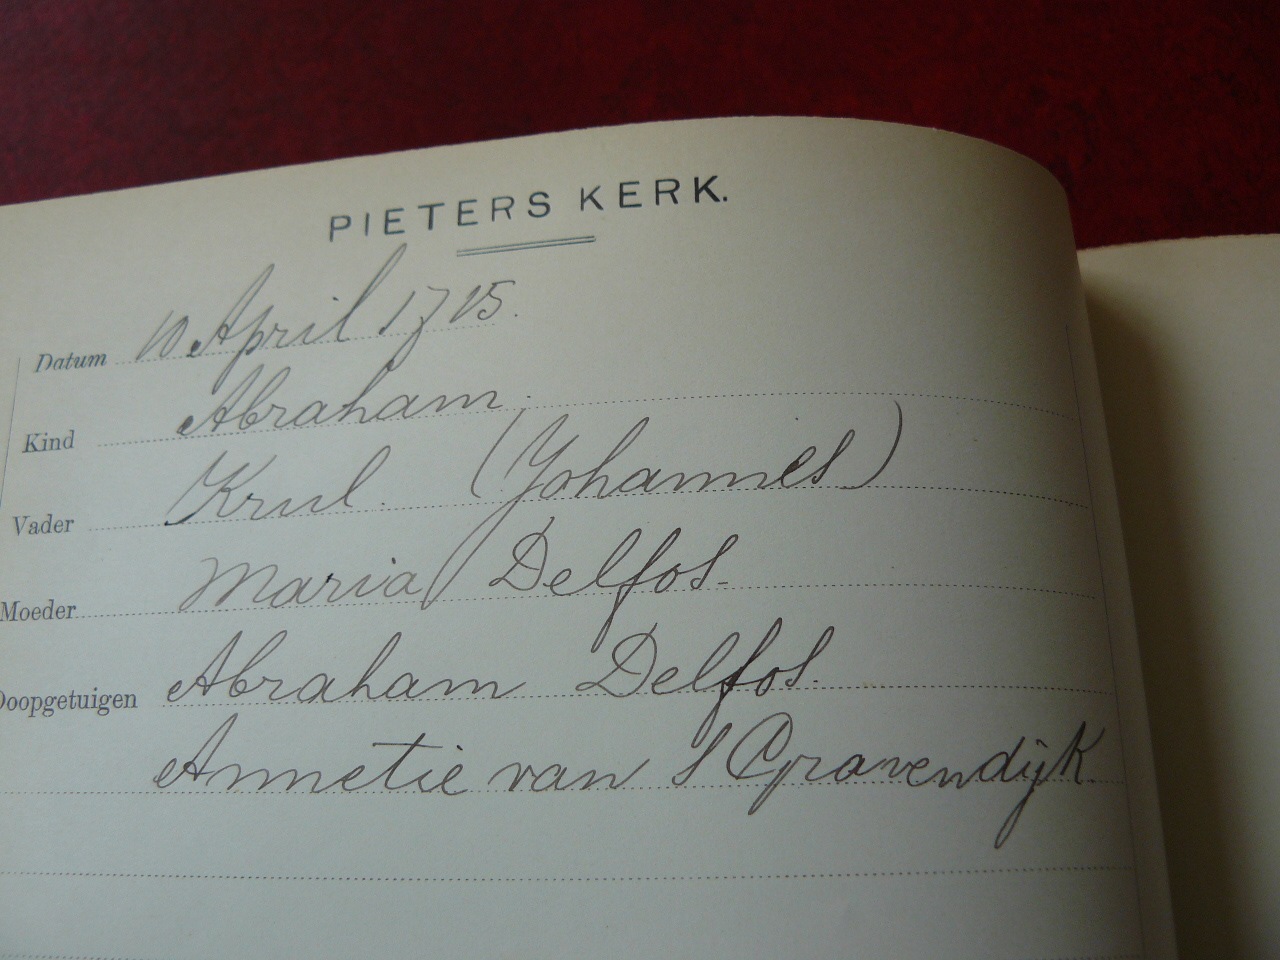 PIETERS KERK.
Datum 10 April 1715.
Kind Abraham.
Vader Krul. (Johannes)
Moeder Maria Delfos
Doopgetuigen Abraham Delfos.
Annetie van S Gravendijk.